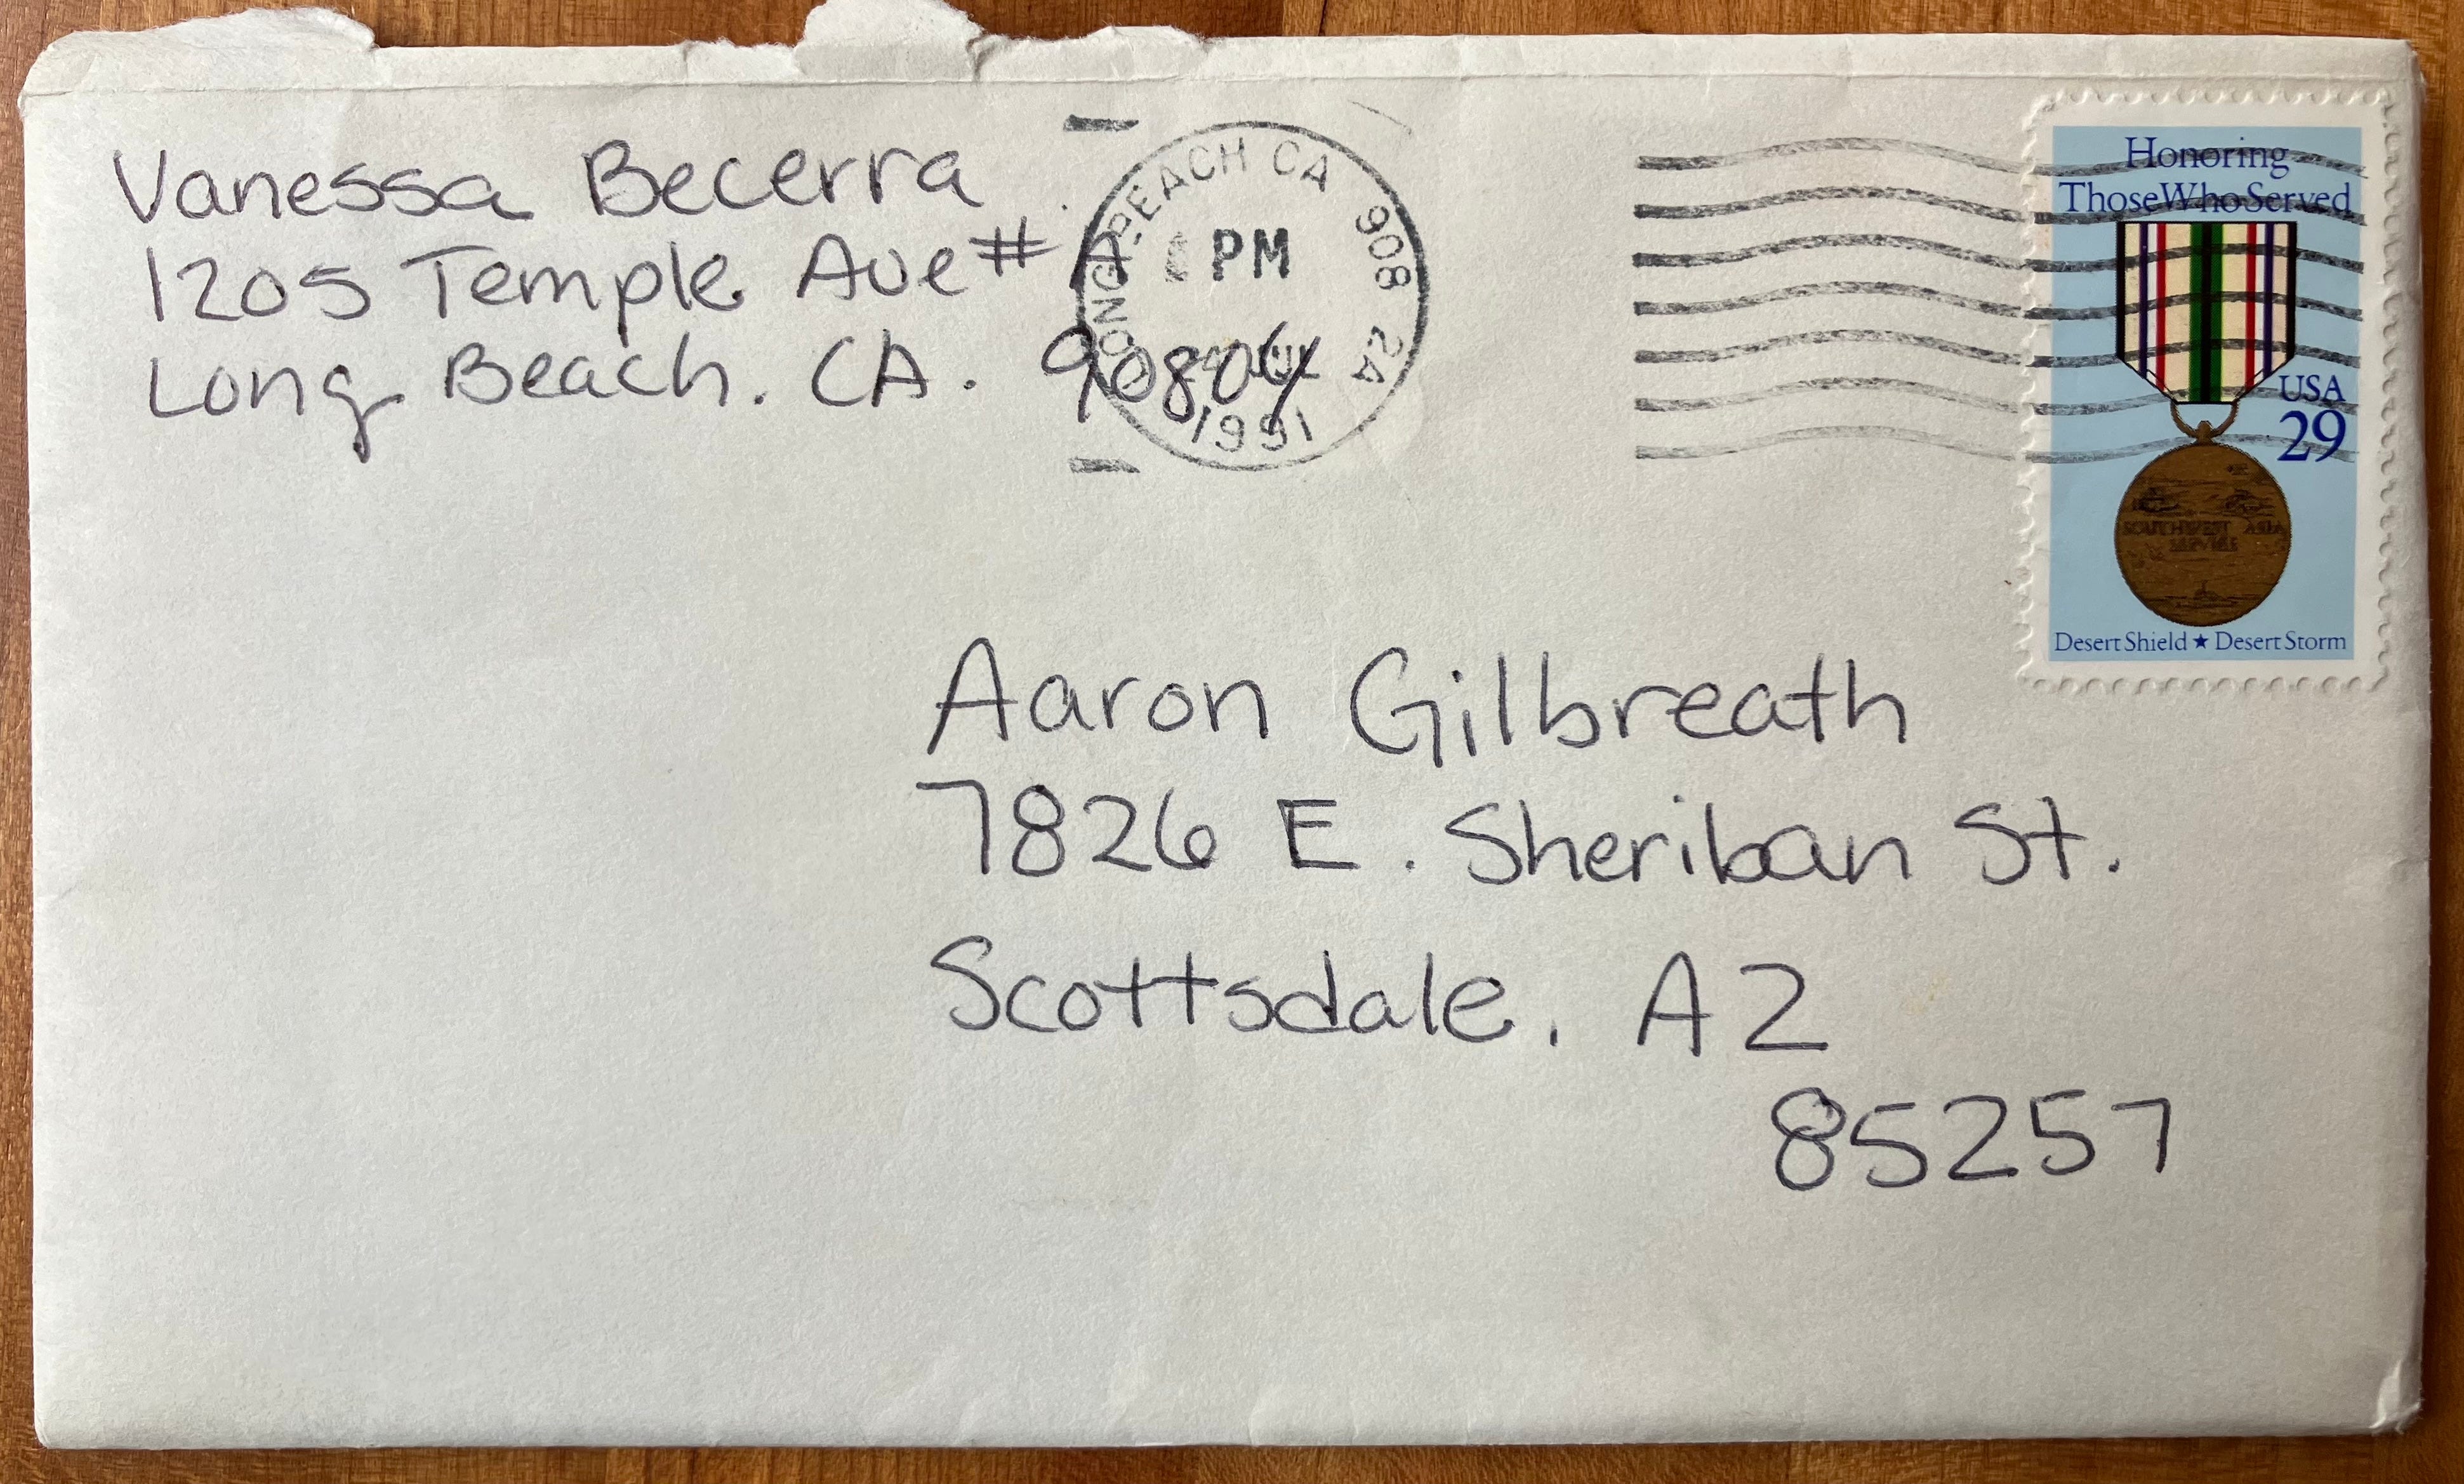 Vanessa Becerra
1205 Temple Ave # A
Long Beach. CA. 90804
LONG BEACH CA 908 2A
PM
JUL
1991
Honoring
Those Who Served
USA
29
SOUTHWEST ASIA
SERVICE
Desert Shield ★ Desert Storm
Aaron Gilbreath
7826 E. Sheriban St.
Scottsdale, AZ
85257